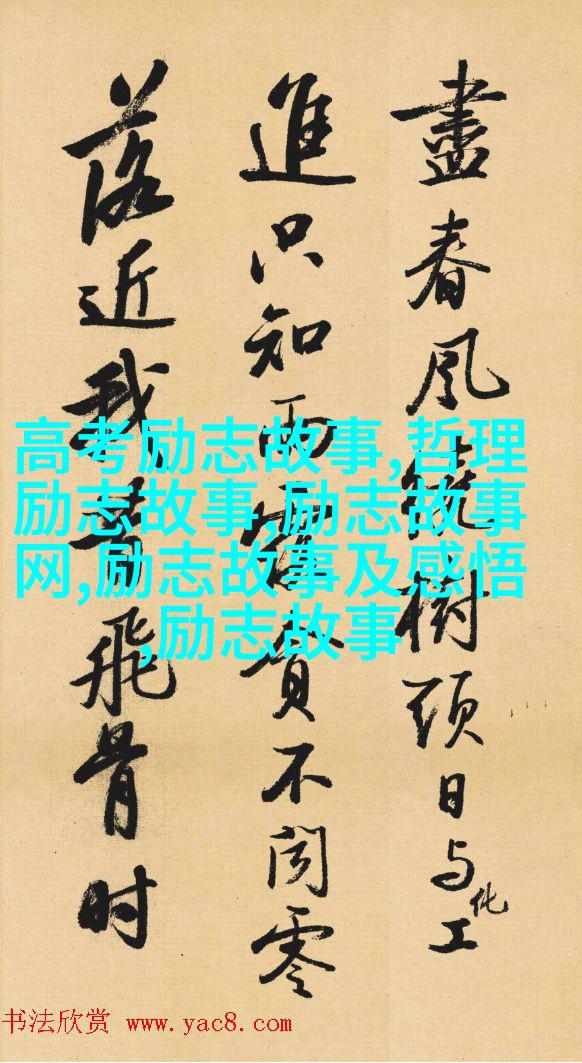 盡春風繞樹頭日与化工
進只知雨露貪不聞零
落近我昔飛骨时
高考励志故事,哲理
励志故事,励志故事
网,励志故事及感悟
,励志故事
书法欣赏 www.yac8.com